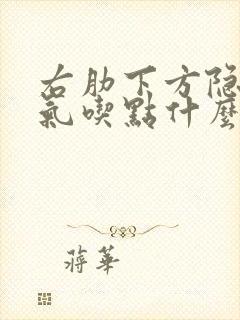 右肋下方隐
氣喫點什麼
蔣華